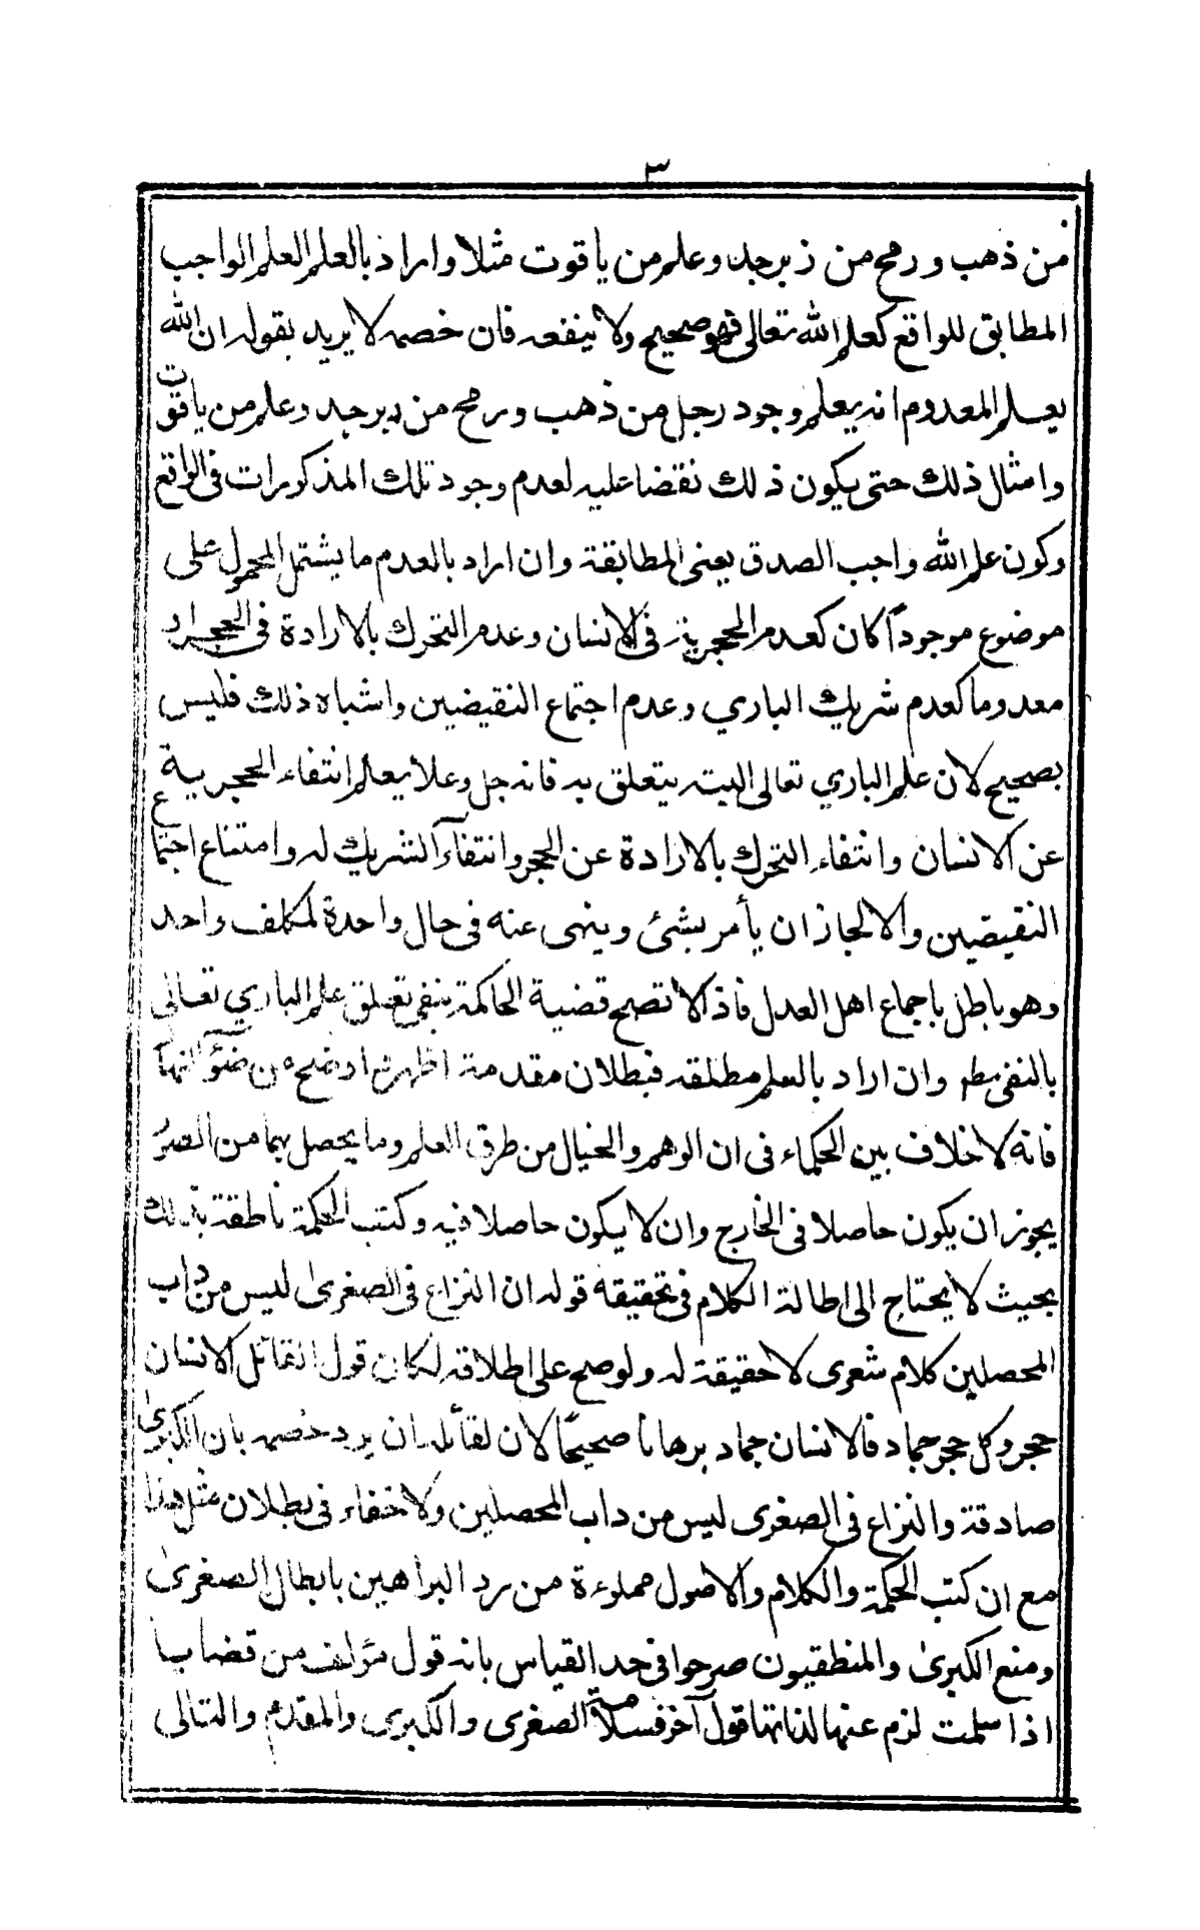 ٣
من ذهب ورمح من زبرجد وعلم من ياقوت مثلا واراد بالعلم العلم الواجب
المطابق للواقع كعلم الله تعالى فهو صحيح ولا ينفعه فان خصمه لا يريد بقوله ان الله
يعلم المعدوم انه يعلم وجود رجل من ذهب ورمح من زبرجد وعلم من ياقوت
وامثال ذلك حتى يكون ذلك نقضا عليه لعدم وجود تلك المذكورات فى الواقع
وكون علم الله واجب الصدق يعنى المطابقة وان اراد بالعدم ما يشتمل المحمول على
موضوع موجوداً كان كعدم الحجرية فى الانسان وعدم التحرك بالارادة فى الحجر او
معدوما كعدم شريك الباري وعدم اجتماع النقيضين واشباه ذلك فليس
بصحيح لان علم الباري تعالى البته يتعلق به فانه جل وعلا يعلم انتفاء الحجرية
عن الانسان وانتفاء التحرك بالارادة عن الحجر وانتفاء الشريك له وامتناع اجتماع
النقيضين والا لجاز ان يأمر بشئ وينهى عنه فى حال واحدة لمكلف واحد
وهو باطل باجماع اهل العدل فاذ لا تصح قضية الحاكمة بنفى تعلق علم الباري تعالى
بالنفى مطم وان اراد بالعلم مطلقه فبطلان مقدمته اظهر واوضح من ضوء النهار
فانه لا خلاف بين الحكماء فى ان الوهم والخيال من طرق العلم وما يحصل بهما من الصور
يجوز ان يكون حاصلا فى الخارج وان لا يكون حاصلا فيه وكتب الحكمة ناطقة بذلك
بحيث لا يحتاج الى اطالة الكلام فى تحقيقه قوله ان النزاع فى الصغرى ليس من داب
المحصلين كلام شعرى لا حقيقة له ولو صح على اطلاقه لكان قول القائل الانسان
حجر وكل حجر جماد فالانسان جماد برهانا صحيحًا لان لقائله ان يرد خصمه بان الكبرى
صادقة والنزاع فى الصغرى ليس من داب المحصلين ولا خفاء فى بطلان مثل هذا
مع ان كتب الحكمة والكلام والاصول مملوءة من رد البراهين بابطال الصغرى
ومنع الكبرى والمنطقيون صرحوا فى حد القياس بانه قول مؤلف من قضايا
اذا سلمت لزم عنها لذاتها قول آخر فسلامة الصغرى والكبرى والمقدم والتالى